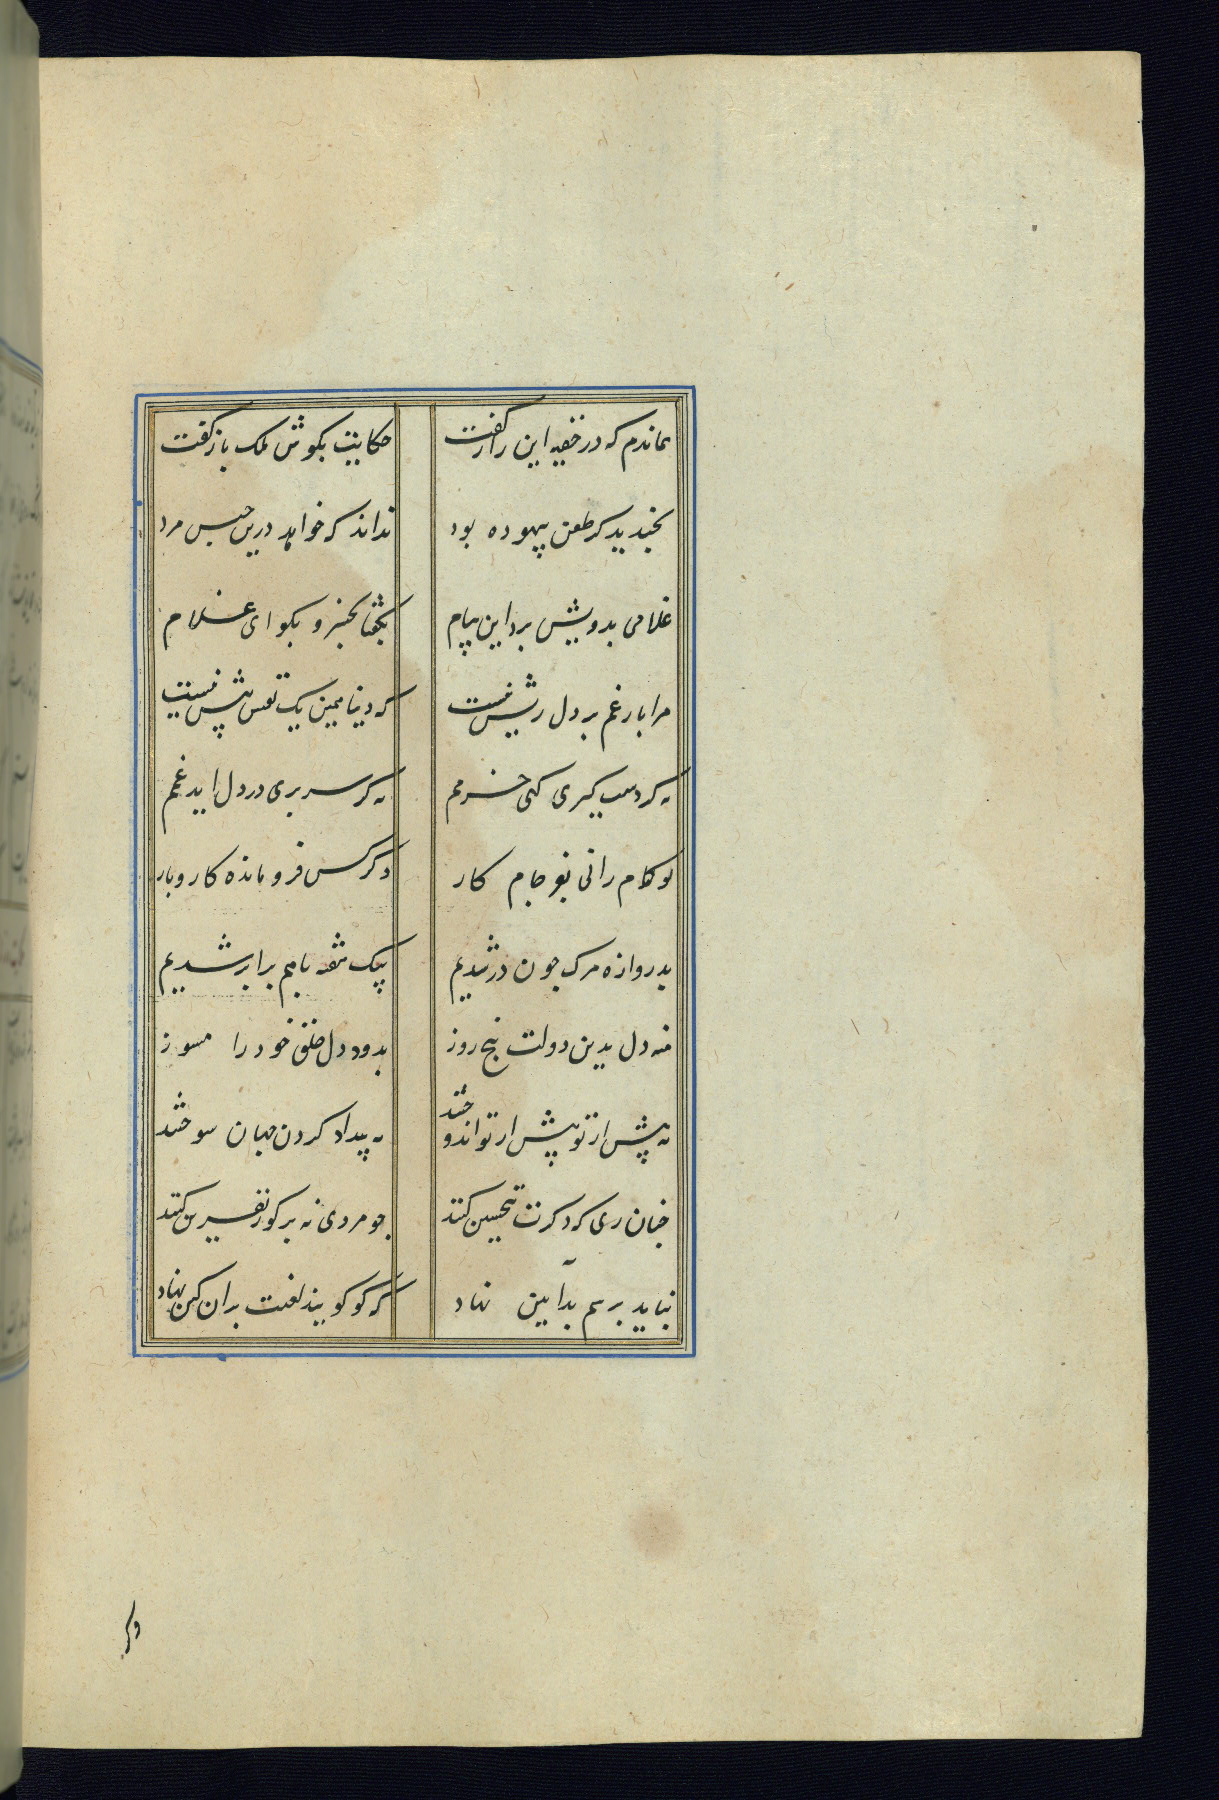 هماندم که در خفیه این راز گفت حکایت بکوش ملک باز گفت
بخندید کو طعن بیهوده بود نداند که خواهد درین حبس مرد
غلامی بدرویش برد این پیام بگفتا بخسرو بکو ای غلام
مرا بار غم بر دل ریش نیست که دنیا همین یک نفس پیش نیست
نه کر دست کیری کنی خرمم نه کر سر بری در دل اید غمم
تو کام رانی بفرجام کار دکر کس فرو مانده کار و بار
بدروازه مرک چون در شدیم بیک هفته باهم برابر شدیم
منه دل بدین دولت پنج روز بدود دل خلق خود را مسوز
نه پیش از تو بیش از تو اندوختند به بیداد کردن جهان سوختند
چنان زی که ذکرت بتحسین کنند چو مردی نه بر کور نفرین کنند
نباید برسم بد آیین نهاد که کویند لعنت بران کین نهاد